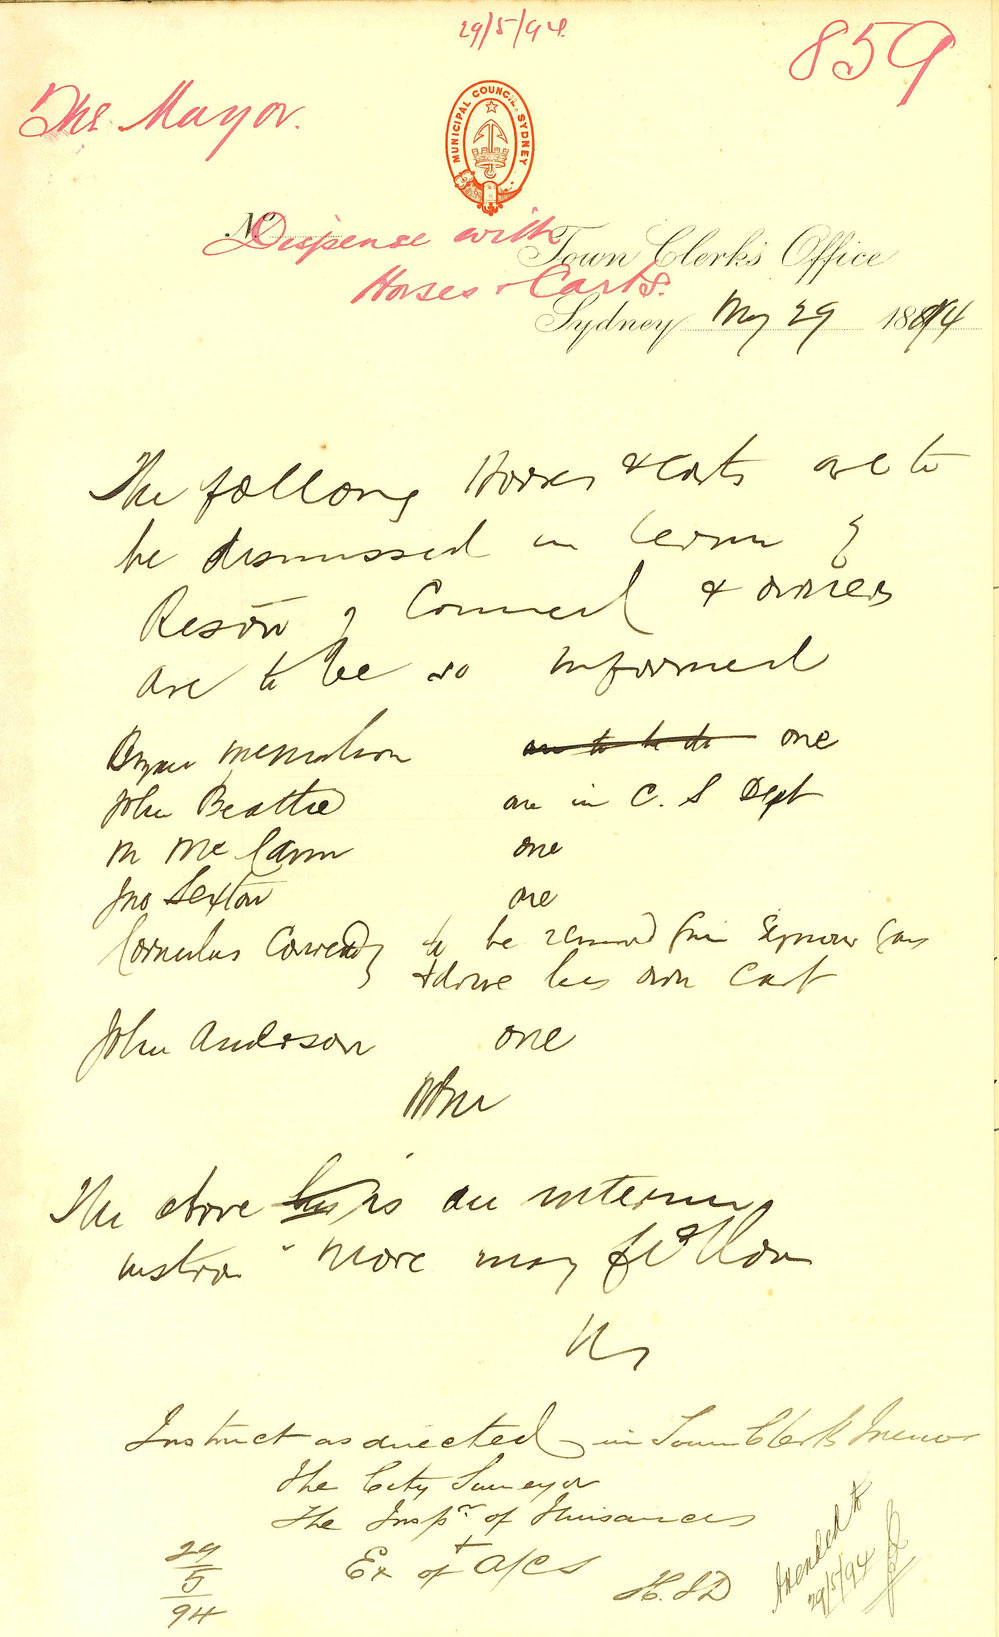 29/5/94.
859
The Mayor.
MUNICIPAL COUNCIL. SYDNEY
No
Dispense with
Town Clerk's Office
Horses & Carts.
Sydney May 29 1894
The following Horses & Carts are to
be dismissed in terms of
Resotn of Council & owners
are to be so informed
Bryan one
John Beattie one in C. S Dept
M McCann one
Jno Sexton one
Cornelius to be removed from Seymour
& drive his own Cart
John Anderson one
The above is an interim
instrn more may follow
Instruct as directed in Town Clerk's Memo
The City Surveyor
The Inspr. of Nuisances
Ex of A/CS
29
5
94
H. SD
Attended to
29/5/94